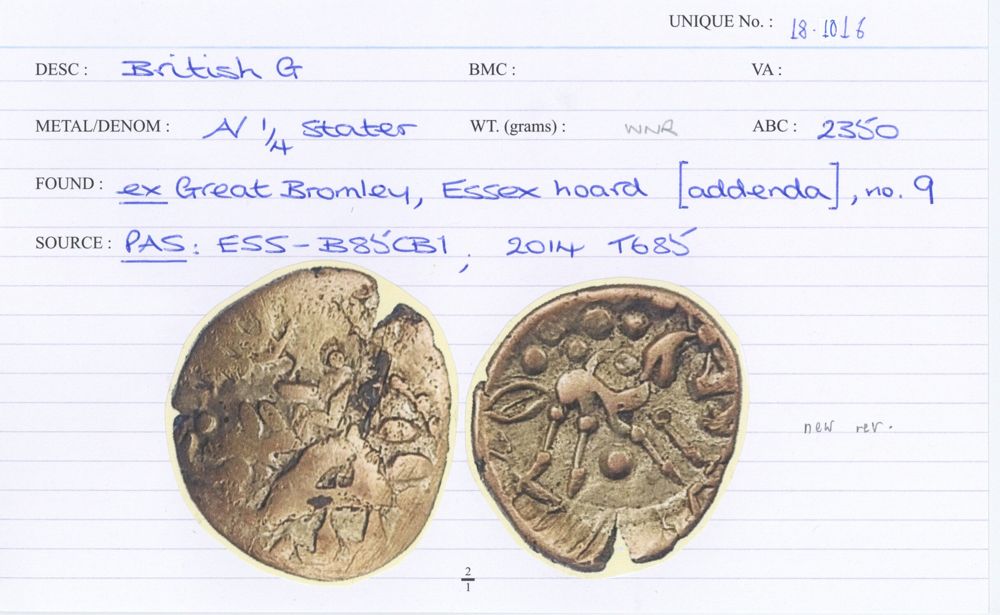 UNIQUE No. : 18.1016
DESC : British G BMC : VA :
METAL/DENOM : AV 1/4 stater WT. (grams) : WNR ABC : 2350
FOUND : ex Great Bromley, Essex hoard [addenda], no. 9
SOURCE : PAS: ESS-B85CB1, 2014 T685
new rev.
2/1